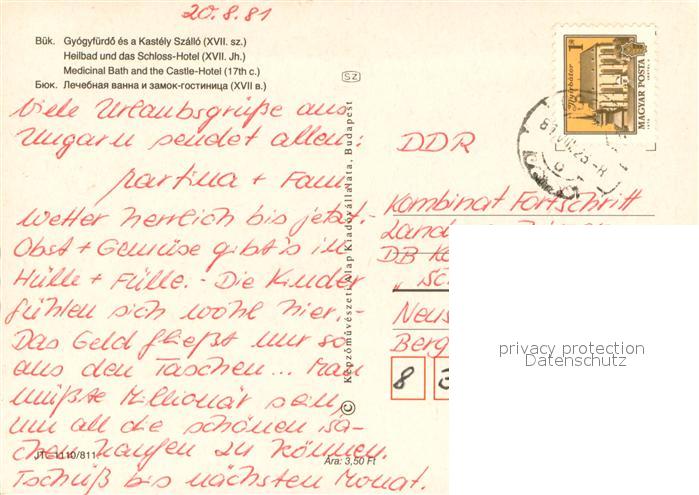 20.8.81
Bük. Gyógyfürdő és a Kastély Szálló (XVII. sz.)
Heilbad und das Schloss-Hotel (XVII. Jh.)
Medicinal Bath and the Castle-Hotel (17th c.)
Бюк. Лечебная ванна и замок-гостиница (XVII в.)
Viele Urlaubsgrüße aus
Ungarn sendet allen:
Martina + Fam.
Wetter herrlich bis jetzt.-
Obst + Gemüse gibt's in
Hülle + Fülle. - Die Kinder
fühlen sich wohl hier.-
Das Geld fließt nur so
aus den Taschen... Man
müßte Millionär sein,
um all die schönen Sa-
chen kaufen zu können.
Tschüß bis nächsten Monat.
JTC 1110/811
Ára: 3,50 Ft
SZ
© Képzőművészeti Alap Kiadóvállalata, Budapest
1 Ft
Nyírbátor
MAGYAR POSTA
DDR
Kombinat Fortschritt
DB
Neus
Berg
8
privacy protection
Datenschutz